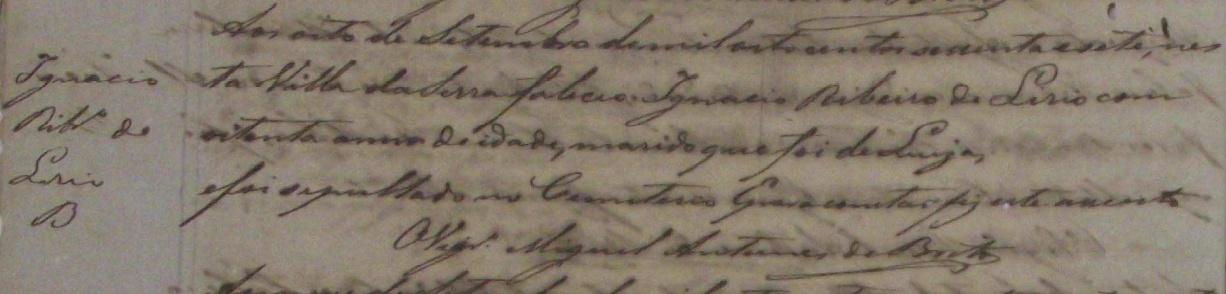 Aos oito de Setembro de mil oito centos sessenta e sete, nes
ta Villa da Serra faleceo Ignacio Ribeiro de Lirio com
oitenta annos de idade, marido que foi de Luiza,
e foi sepultado no Cemiterio Gera constar fiz este assento
O Vigrº Miguel Antunes de Brito
Ignacio
Ribrº de
Lirio
B